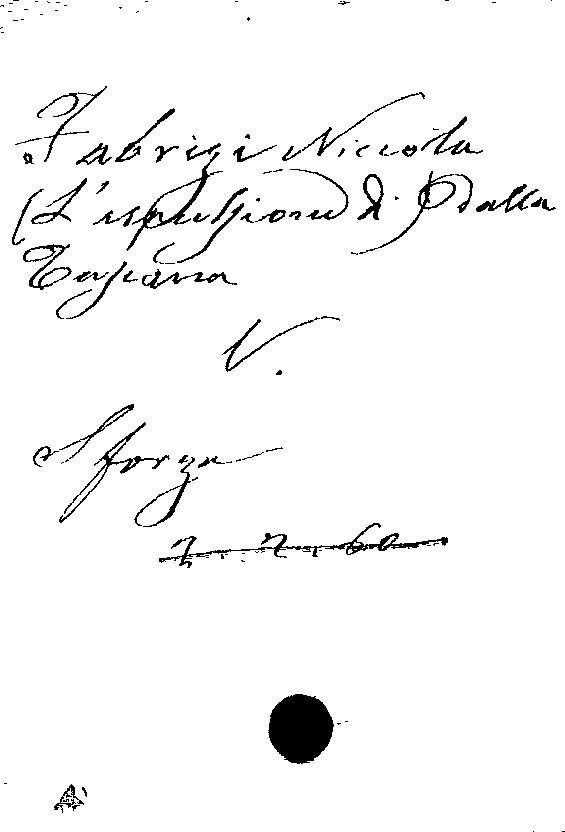 Fabrizi Niccola
(L'espulsione di) dalla
Toscana
V.
Sforza